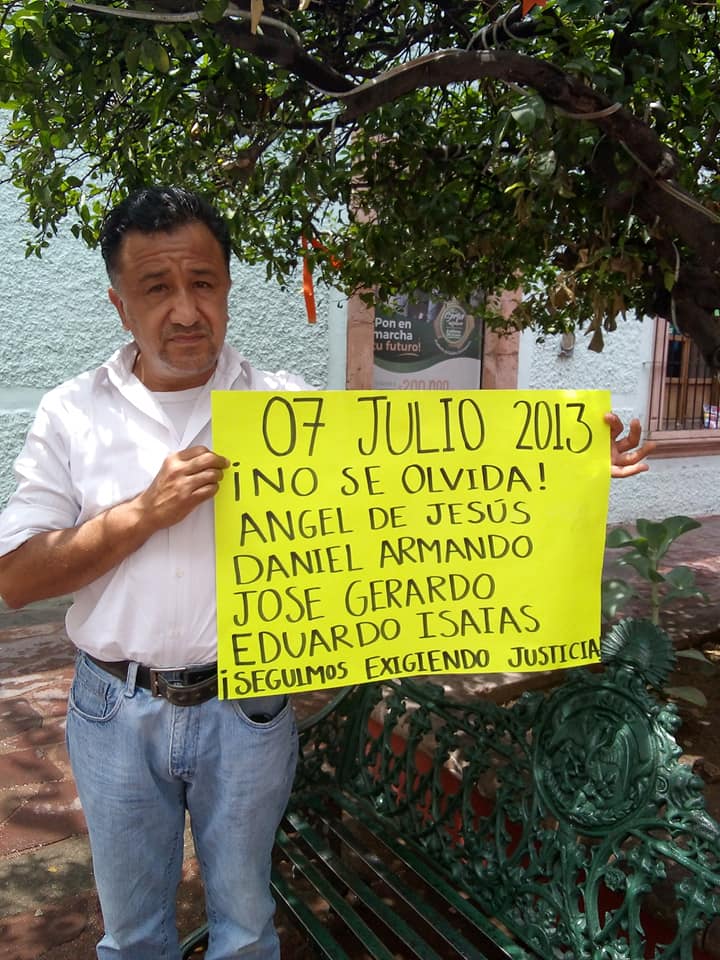 ¡Pon en
marcha
tu futuro!
200,000
07 JULIO 2013
¡NO SE OLVIDA!
ANGEL DE JESÚS
DANIEL ARMANDO
JOSE GERARDO
EDUARDO ISAIAS
¡SEGUIMOS EXIGIENDO JUSTICIA